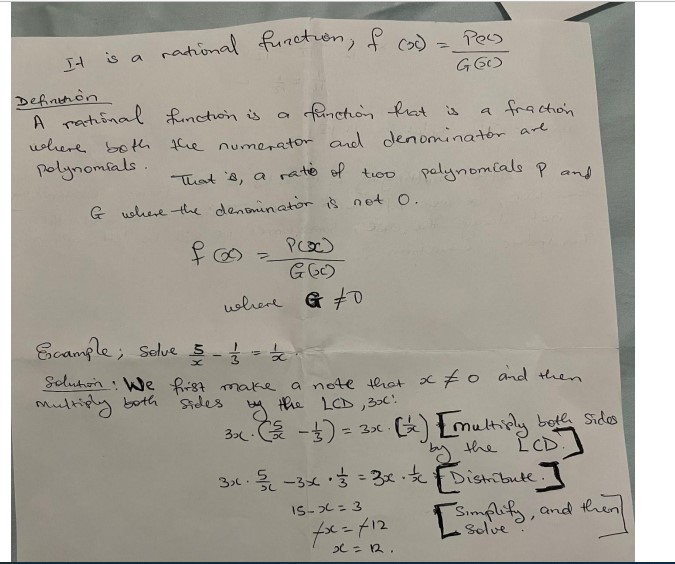 It is a rational function, f(x) = P(x)/G(x)
Definition
A rational function is a function that is a fraction
where both the numerator and denominator are
polynomials.
That is, a ratio of two polynomials P and
G where the denominator is not 0.
f(x) = P(x)/G(x)
where G ≠ 0
Example; Solve 5/x - 1/3 = 1/x.
Solution: We first make a note that x ≠ 0 and then
multiply both sides by the LCD, 3x:
3x·(5/x - 1/3) = 3x·[1/x) [multiply both sides
by the LCD.]
3x·5/x - 3x·1/3 = 3x·1/x [Distribute.]
15 - x = 3 [Simplify, and then
-x = -12 solve.]
x = 12.